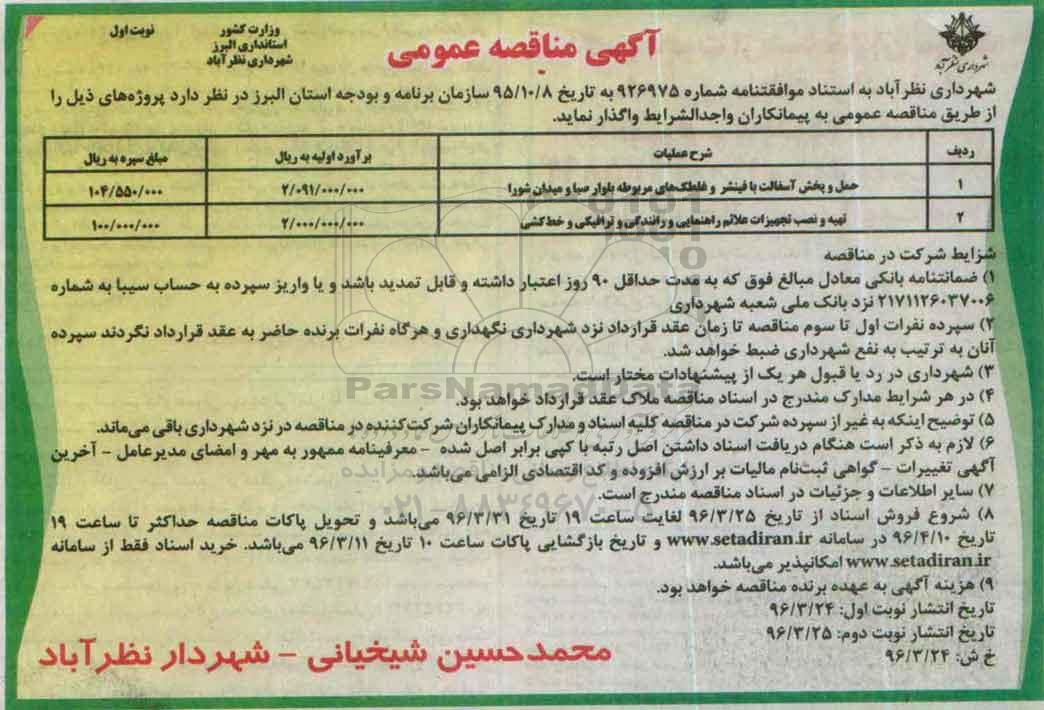 شهرداری نظرآباد
آگهی مناقصه عمومی
وزارت کشور
استانداری البرز
شهرداری نظرآباد
نوبت اول
شهرداری نظرآباد به استناد موافقتنامه شماره ۹۲۶۹۷۵ به تاریخ ۹۵/۱۰/۸ سازمان برنامه و بودجه استان البرز در نظر دارد پروژه‌های ذیل را
از طریق مناقصه عمومی به پیمانکاران واجدالشرایط واگذار نماید.
ردیف شرح عملیات برآورد اولیه به ریال مبلغ سپره به ریال
۱ حمل و پخش آسفالت با فینشر و غلطک‌های مربوطه بلوار صبا و میدان شورا ۲/۰۹۱/۰۰۰/۰۰۰ ۱۰۴/۵۵۰/۰۰۰
۲ تهیه و نصب تجهیزات علائم راهنمایی و رانندگی و ترافیکی و خط کشی ۲/۰۰۰/۰۰۰/۰۰۰ ۱۰۰/۰۰۰/۰۰۰
شرایط شرکت در مناقصه
۱) ضمانتنامه بانکی معادل مبالغ فوق که به مدت حداقل ۹۰ روز اعتبار داشته و قابل تمدید باشد و یا واریز سپرده به حساب سیبا به شماره
۲۱۷۱۱۲۶۰۳۷۰۰۶ نزد بانک ملی شعبه شهرداری
۲) سپرده نفرات اول تا سوم مناقصه تا زمان عقد قرارداد نزد شهرداری نگهداری و هرگاه نفرات برنده حاضر به عقد قرارداد نگردند سپرده
آنان به ترتیب به نفع شهرداری ضبط خواهد شد.
۳) شهرداری در رد یا قبول هر یک از پیشنهادات مختار است.
۴) در هر شرایط مدارک مندرج در اسناد مناقصه ملاک عقد قرارداد خواهد بود.
۵) توضیح اینکه به غیر از سپرده شرکت در مناقصه کلیه اسناد و مدارک پیمانکاران شرکت کننده در مناقصه در نزد شهرداری باقی می‌ماند.
۶) لازم به ذکر است هنگام دریافت اسناد داشتن اصل رتبه با کپی برابر اصل شده - معرفینامه ممهور به مهر و امضای مدیرعامل - آخرین
آگهی تغییرات - گواهی ثبت‌نام مالیات بر ارزش افزوده و کد اقتصادی الزامی می‌باشد.
۷) سایر اطلاعات و جزئیات در اسناد مناقصه مندرج است.
۸) شروع فروش اسناد از تاریخ ۹۶/۳/۲۵ لغایت ساعت ۱۹ تاریخ ۹۶/۳/۳۱ می‌باشد و تحویل پاکات مناقصه حداکثر تا ساعت ۱۹
تاریخ ۹۶/۴/۱۰ در سامانه www.setadiran.ir و تاریخ بازگشایی پاکات ساعت ۱۰ تاریخ ۹۶/۳/۱۱ می‌باشد. خرید اسناد فقط از سامانه
www.setadiran.ir امکانپذیر می‌باشد.
۹) هزینه آگهی به عهده برنده مناقصه خواهد بود.
تاریخ انتشار نوبت اول: ۹۶/۳/۲۴
تاریخ انتشار نوبت دوم: ۹۶/۳/۲۵
خ ش: ۹۶/۳/۲۴
محمدحسین شیخیانی - شهردار نظرآباد
ParsNamadData